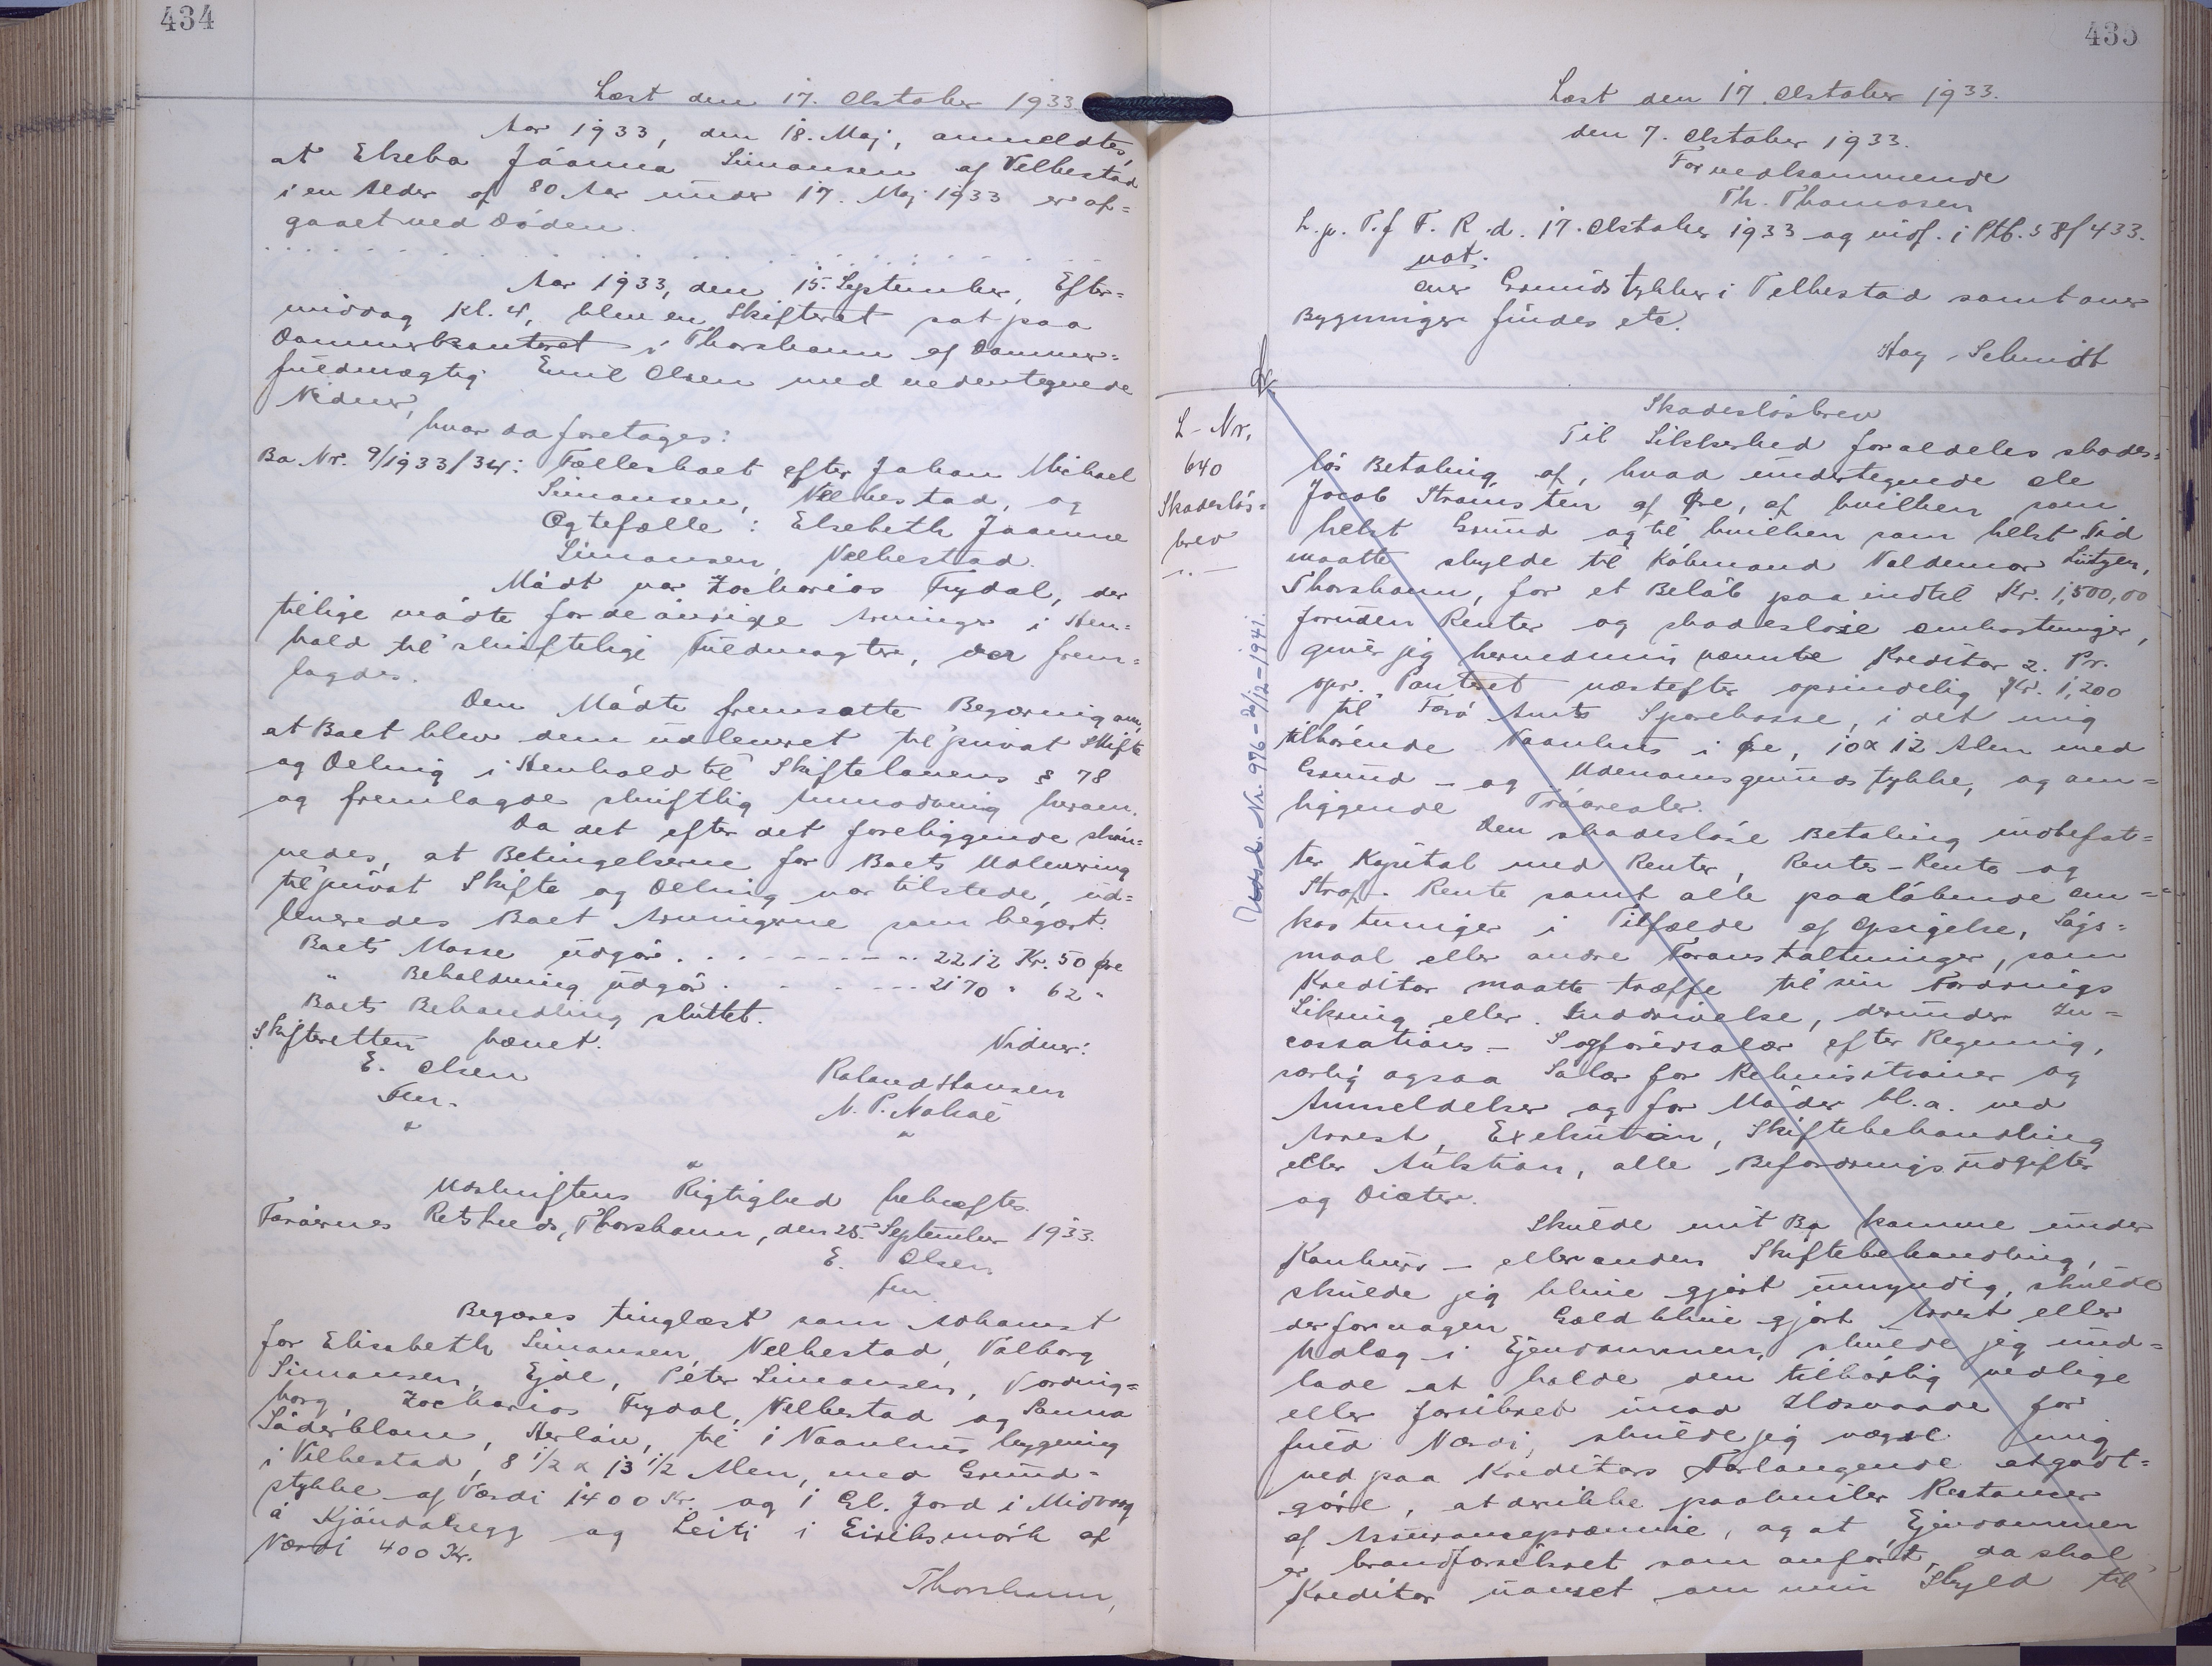 434
Læst den 17. Oktober 1933.
Aar 1933, den 18. Maj, anmeldtes,
at Elseba Jóanna Simonsen af Velbestad
i en Alder af 80 Aar under 17. Maj 1933 er af=
gaaet ved Døden.
Aar 1933, den 15. September, Efter=
middag Kl. 4, blev en Skifteret sat paa
Dommerkontoret i Thorshavn af Dommer=
fuldmægtig Emil Olsen med undertegnede
Vidner,
hvor da foretoges:
Bo Nr. 9/1933/34: Fællesboet efter Johan Michael
Simonsen, Velbestad, og
Ægtefælle: Elsebeth Joanne
Simonsen, Velbestad.
Mødt var Zacharias Frydal, der
tillige mødte for de øvrige Arvinger i Hen=
hold til skriftelige Fuldmagter, der frem=
lagdes.
Den Mødte fremsatte Begæring om,
at Boet blev dem udleveret til privat Skifte
og Deling i Henhold til Skiftelovens § 78
og fremlagde skriftlig Anmodning herom.
Da det efter det foreliggende skøn=
nedes, at Betingelserne for Boets Udlevering
til privat Skifte og Deling var tilstede, ud=
leveredes Boet Arvingerne som begært.
Boets Masse udgør. . . . . . . . . . 2212 Kr. 50 Øre
" Beholdning udgør . . . . . . . 2170 " 62 "
Boets Behandling sluttet.
Skifteretten hævet.
Vidner:
E. Olsen
Roland Hansen
Fm.
N. P. Nolsøe
Udskriftens Rigtighed bekræftes.
Færøernes Retskreds, Thorshavn, den 25. September 1933.
E. Olsen
fm.
Begæres tinglæst som Adkomst
for Elisabeth Simonsen, Velbestad, Valborg
Simonsen, Ejde, Péter Simonsen, Vording=
borg, Zacharias Frydal, Velbestad og Sanna
Søderblom, Herløv, til i Vaanhus bygning
i Velbestad, 8 1/2 x 13 1/2 Alen, med Grund=
stykke af Værdi 1400 Kr. og i Gl. Jord i Midvaag
á Kjóvdalsegg og Leiti i Eiriksmørk af
Værdi 400 Kr.
Thorshavn,
435
Læst den 17. Oktober 1933.
den 7. Oktober 1933.
For vedkommende
Th. Thomsen
L. p. T. f. F. R. d. 17. Oktober 1933 og indf. i Ptb. S 8 f 433.
not.
over Grundstykker i Velbestad samt over
Bygninger findes etc.
Aag. Schmidt
L-Nr.
640
Skadesløs=
brev
Nr. 976 - 2/12 - 1941.
Skadesløsbrev
Til Sikkerhed for aldeles skades=
løs Betaling af, hvad undertegnede Ole
Jacob Strømsten af Øre, af hvilken som
helst Grund og til hvilken som helst Tid
maatte skylde til Købmand Valdemar Lützen,
Thorshavn, for et Beløb paa indtil Kr. 1,500,00
foruden Renter og skadesløse Omkostninger,
giver jeg hermed min nævnte Kreditor 2. Pr.
opr. Panteret næstefter oprindelig Kr. 1,200
til Færø Amts Sparekasse, i det mig
tilhørende Vaanhus i Øre, 10 x 12 Alen med
Grund - og Udenomsgrundstykke, og om=
liggende Tråarealer.
Den skadesløse Betaling indbefat=
ter Kapital med Renter, Rentes-Rente og
Straf-Rente samt alle paaløbende Om=
kostninger i Tilfælde af Opsigelse, Søgs=
maal eller andre Foranstaltninger, som
Kreditor maatte træffe til sin Fordrings
Sikring eller Inddrivelse, derunder In=
cassations - Sagførersalær efter Regning,
særlig ogsaa Salær for Rekvisitioner og
Anmeldelser og for Møder bl.a. ved
Arrest, Exekution, Skiftebehandling
eller Auktion, alle Befordringsudgifter
og Diæter.
Skulde mit Bo komme under
Konkurs - eller anden Skiftebehandling,
skulde jeg blive gjort umyndig, skulde
der for nogen Gæld blive gjort Arrest eller
Udlæg i Ejendommen, skulde jeg und=
lade at holde den tilbørlig vedlige
eller forsikret imod Ildsvaade for
fuld Værdi, skulde jeg vægre mig
ved paa Kreditors Forlangende at godt=
gøre, at der ikke paahviler Restancer
af Assurancepræmie, og at Ejendommen
er brandforsikret som anført, da skal
Kreditor uanset om min Skyld til